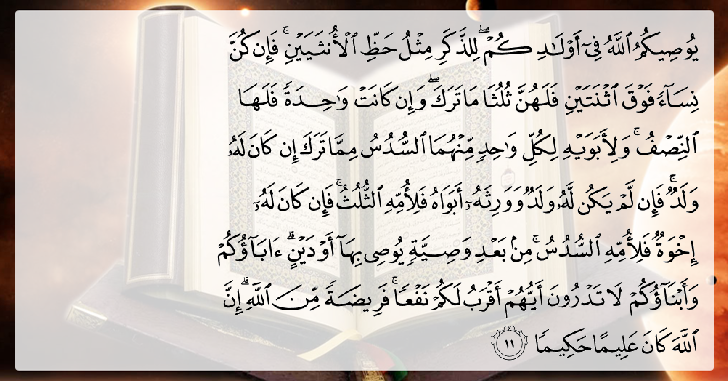 يُوصِيكُمُ ٱللَّهُ فِىٓ أَوْلَـٰدِكُمْ ۖ لِلذَّكَرِ مِثْلُ حَظِّ ٱلْأُنثَيَيْنِ ۚ فَإِن كُنَّ
نِسَآءً فَوْقَ ٱثْنَتَيْنِ فَلَهُنَّ ثُلُثَا مَا تَرَكَ ۖ وَإِن كَانَتْ وَٰحِدَةً فَلَهَا
ٱلنِّصْفُ ۚ وَلِأَبَوَيْهِ لِكُلِّ وَٰحِدٍ مِّنْهُمَا ٱلسُّدُسُ مِمَّا تَرَكَ إِن كَانَ لَهُۥ
وَلَدٌ ۚ فَإِن لَّمْ يَكُن لَّهُۥ وَلَدٌ وَوَرِثَهُۥٓ أَبَوَاهُ فَلِأُمِّهِ ٱلثُّلُثُ ۚ فَإِن كَانَ لَهُۥٓ
إِخْوَةٌ فَلِأُمِّهِ ٱلسُّدُسُ ۚ مِنۢ بَعْدِ وَصِيَّةٍ يُوصِى بِهَآ أَوْ دَيْنٍ ۗ ءَابَآؤُكُمْ
وَأَبْنَآؤُكُمْ لَا تَدْرُونَ أَيُّهُمْ أَقْرَبُ لَكُمْ نَفْعًا ۚ فَرِيضَةً مِّنَ ٱللَّهِ ۗ إِنَّ
ٱللَّهَ كَانَ عَلِيمًا حَكِيمًا ١١